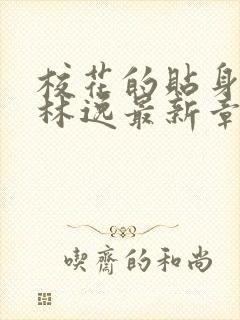 校花的貼身
林逸最新章
喫齋的和尚